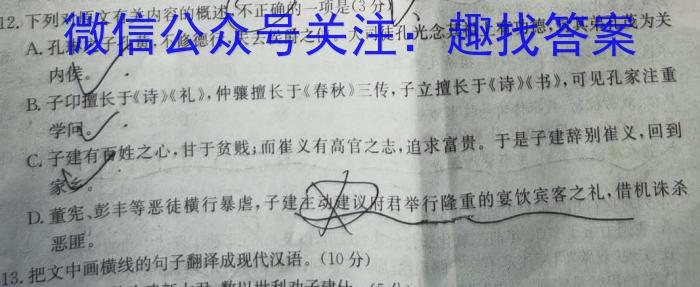 12.下列对原文有关内容的概述,不正确的一项是(3分)
微信公众号关注:趣找答案
A.孔 子 ,不修德行, 去 侯 孔光念 功德 弟 茂为关
内侯。
B.子卬擅长于《诗》《礼》,仲驩擅长于《春秋》三传,子立擅长于《诗》《书》,可见孔家注重
学问。
C.子建有百姓之心,甘于贫贱;而崔义有高官之志,追求富贵。于是子建辞别崔义,回到
家乡。
D.董宪、彭丰等恶徒横行暴虐,子建主动建议府君举行隆重的宴饮宾客之礼,借机诛杀
恶匪。
13.把文中画横线的句子翻译成现代汉语。(10分)
数以世利劝子建仕